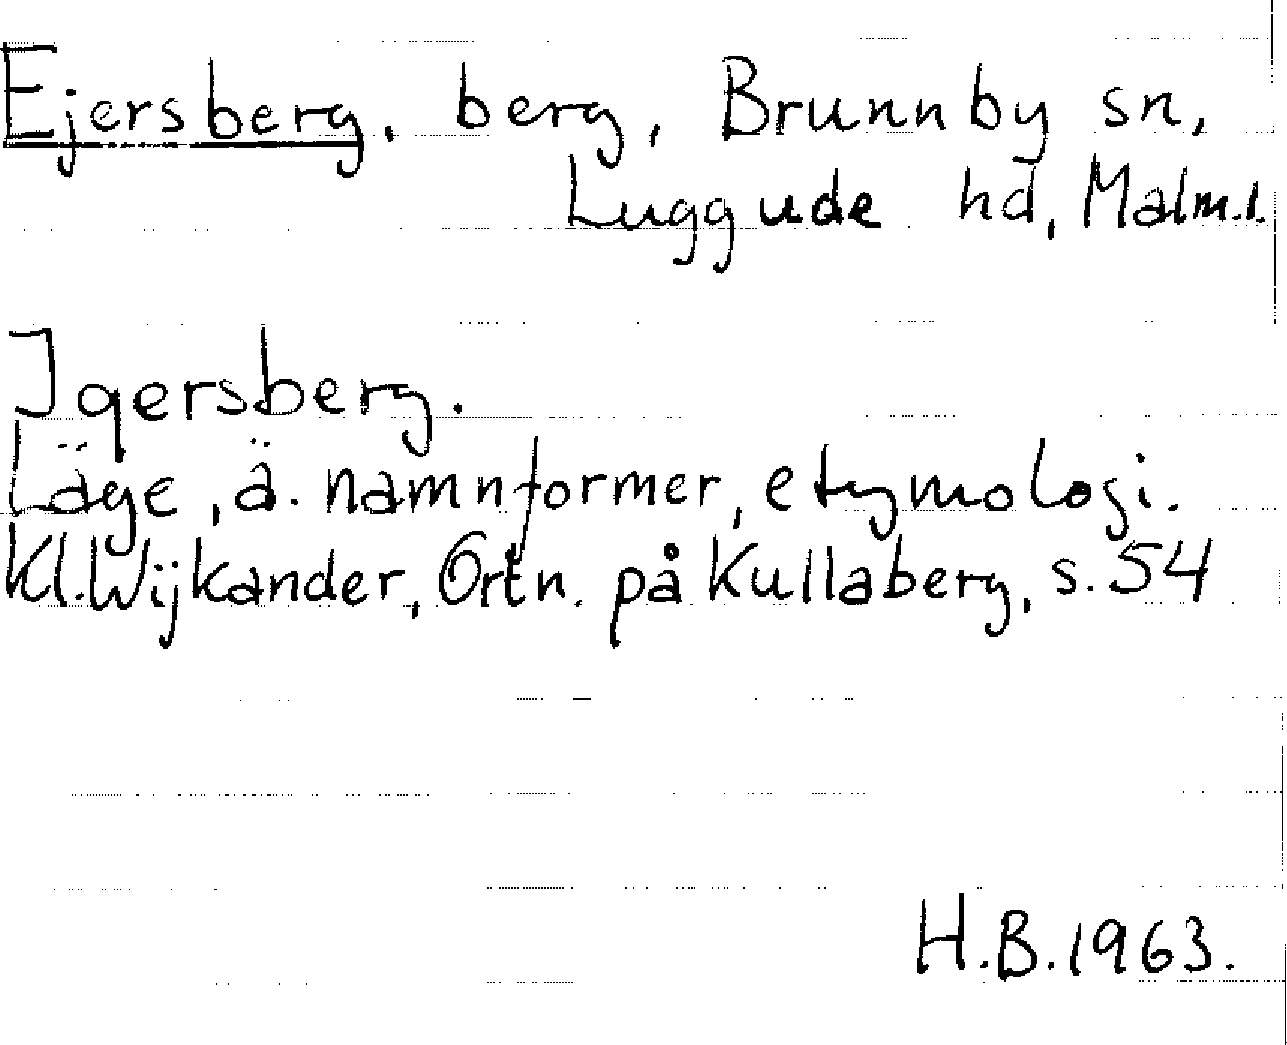 Ejersberg, berg, Brunnby sn,
Luggude hd, Malm.l.
Igersberg.
Läge, ä. namnformer, etymologi.
Kl. Wijkander, Ortn. på Kullaberg, s. 54
H.B. 1963.